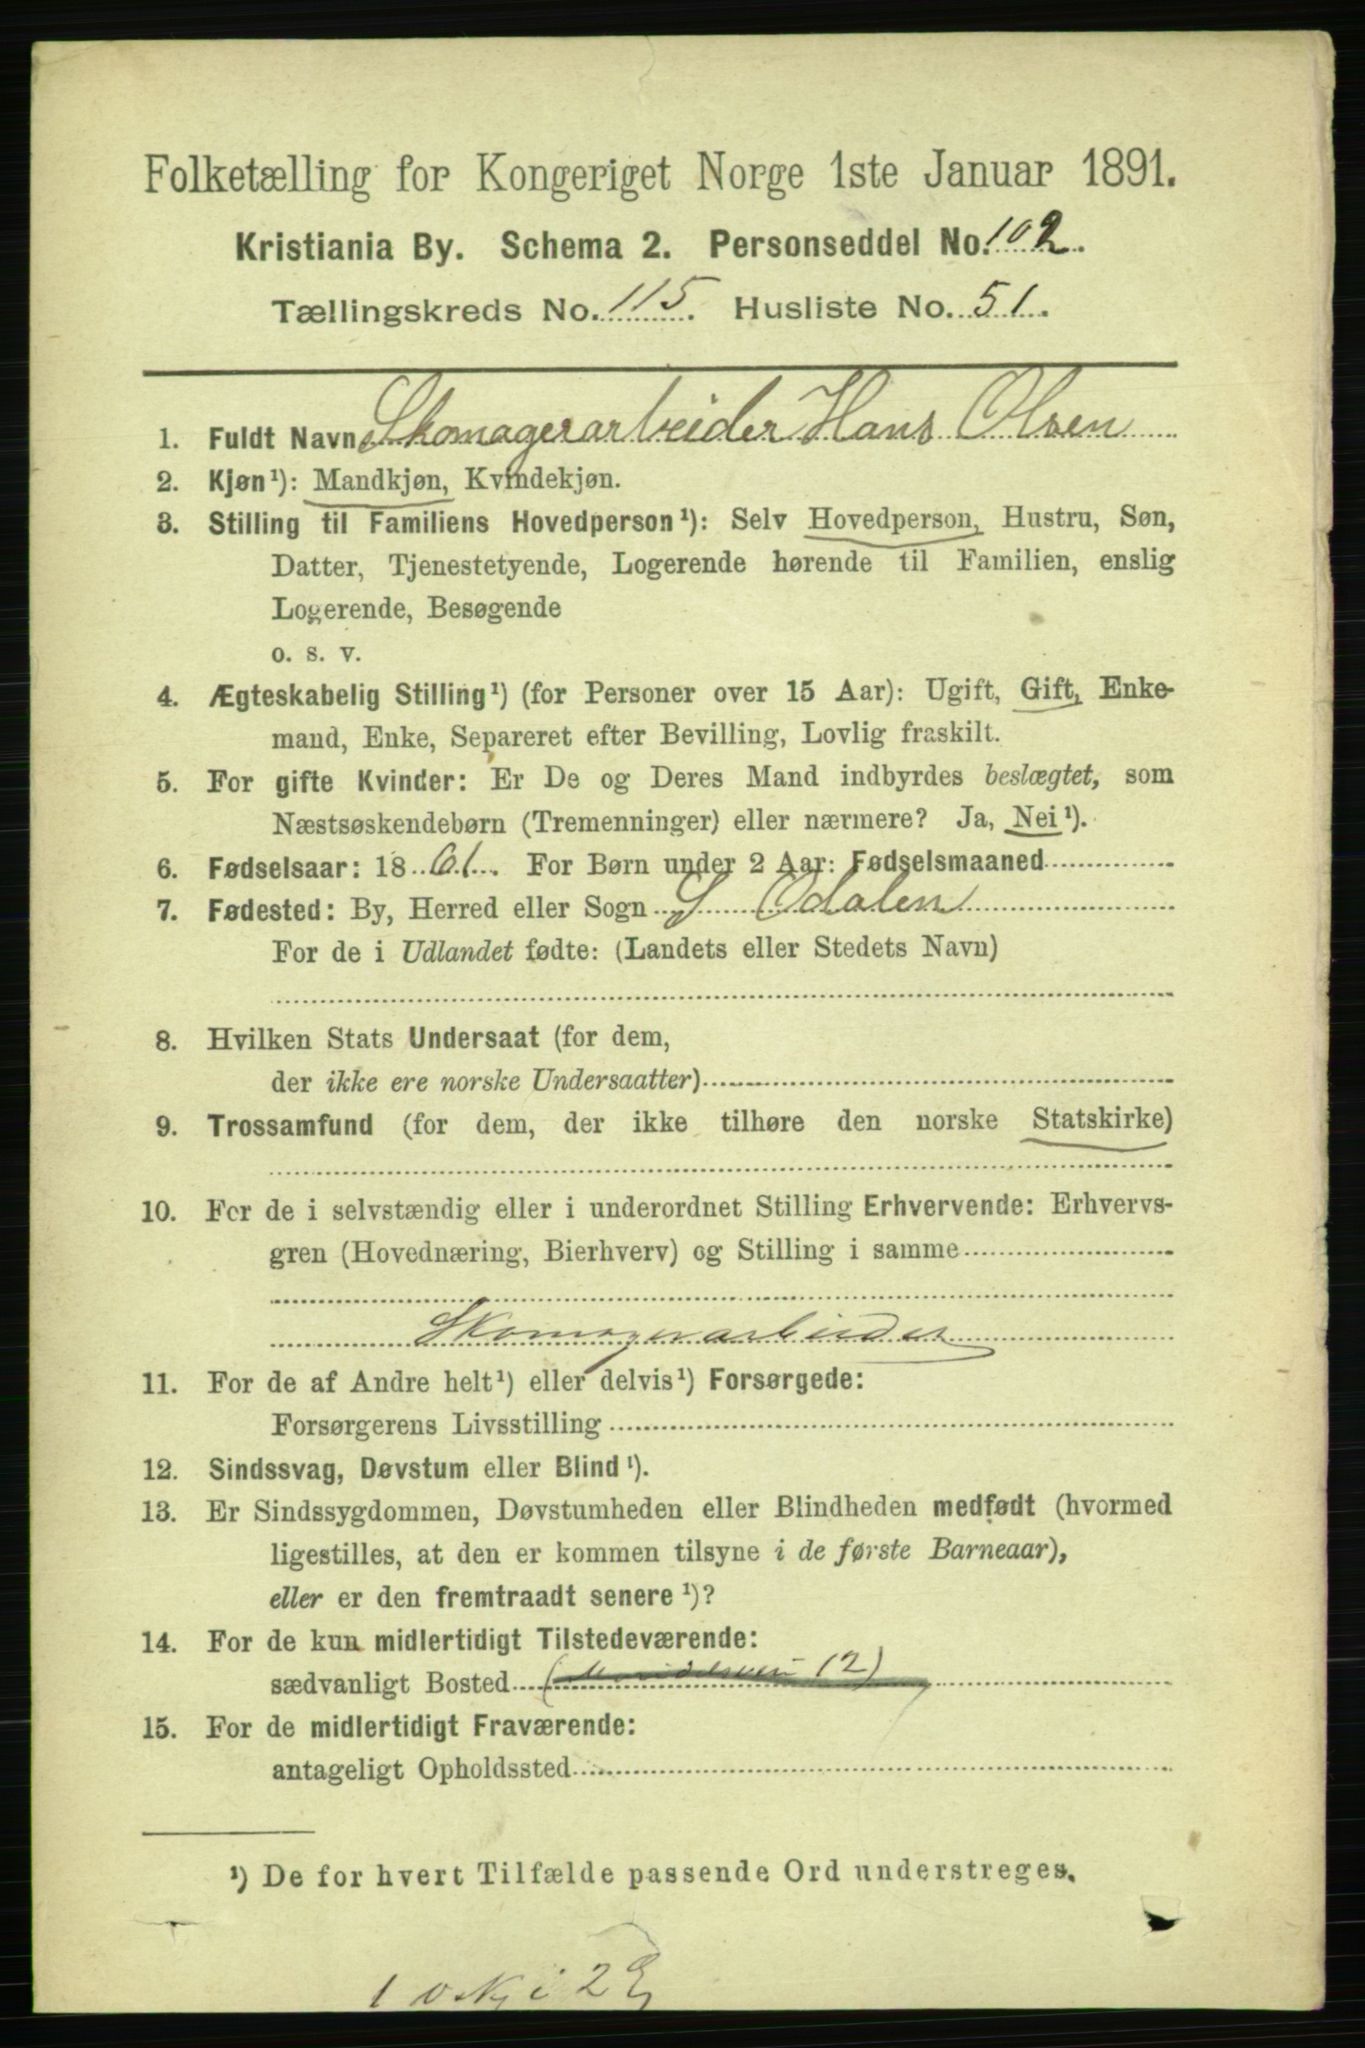 Folketælling for Kongeriget Norge 1ste Januar 1891.
Kristiania By. Schema 2. Personseddel No. 102.
Tællingskreds No. 115. Husliste No. 51.
1. Fuldt Navn Skomagerarbeider Hans Olsen
2. Kjøn¹): Mandkjøn, Kvindekjøn.
3. Stilling til Familiens Hovedperson¹): Selv Hovedperson, Hustru, Søn,
Datter, Tjenestetyende, Logerende hørende til Familien, enslig
Logerende, Besøgende
o. s. v.
4. Ægteskabelig Stilling¹) (for Personer over 15 Aar): Ugift, Gift, Enke-
mand, Enke, Separeret efter Bevilling, Lovlig fraskilt.
5. For gifte Kvinder: Er De og Deres Mand indbyrdes beslægtet, som
Næstsøskendebørn (Tremenninger) eller nærmere? Ja, Nei¹).
6. Fødselsaar: 1861. For Børn under 2 Aar: Fødselsmaaned
7. Fødested: By, Herred eller Sogn S Odalen
For de i Udlandet fødte: (Landets eller Stedets Navn)
8. Hvilken Stats Undersaat (for dem,
der ikke ere norske Undersaatter)
9. Trossamfund (for dem, der ikke tilhøre den norske Statskirke)
10. For de i selvstændig eller i underordnet Stilling Erhvervende: Erhvervs-
gren (Hovednæring, Bierhverv) og Stilling i samme
Skomagerarbeider
11. For de af Andre helt¹) eller delvis¹) Forsørgede:
Forsørgerens Livsstilling
12. Sindssvag, Døvstum eller Blind¹).
13. Er Sindssygdommen, Døvstumheden eller Blindheden medfødt (hvormed
ligestilles, at den er kommen tilsyne i de første Barneaar),
eller er den fremtraadt senere¹)?
14. For de kun midlertidigt Tilstedeværende:
sædvanligt Bosted ( 12)
15. For de midlertidigt Fraværende:
antageligt Opholdssted
¹) De for hvert Tilfælde passende Ord understreges.